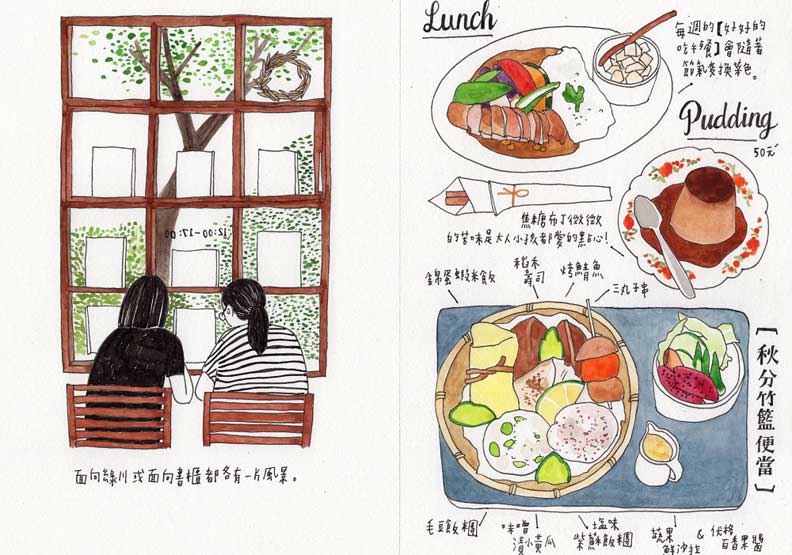 12:00-17:00
面向綠川或面向書櫃都各有一片風景。
Lunch
每週的【好好的
吃午餐】會隨著
節氣變換菜色。
Pudding
50元
焦糖布丁微微
的苦味是大人小孩都愛的點心!
錦蛋蝦米飯
稻禾
壽司
烤鯖魚
三丸子串
[秋分竹籃便當]
毛豆飯糰
味噌
漬小黃瓜
塩味
紫蘇飯糰
蔬果
鮮沙拉
& 优格
百香果醬